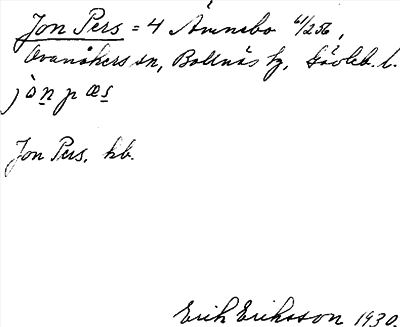 Jon Pers = 4 Ämnebo 61/256,
Ovanåkers sn, Bollnäs tg, Gävleb. l.
jòn pæs
Jon Pers. kb.
Erik Eriksson 1930.